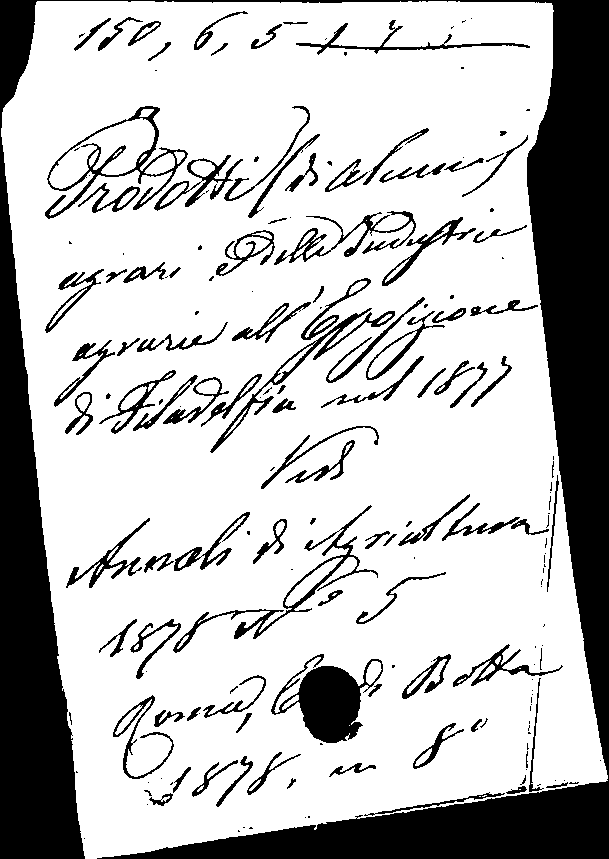 150, 6, 5 1. 7. 5
Prodotti (di alcuni)
agrari e delle Industrie
agrarie all'Esposizione
di Filadelfia nel 1877
Vedi
Annali di Agricoltura
1878 Nº 5
Roma, di Botta
1878. in 8º